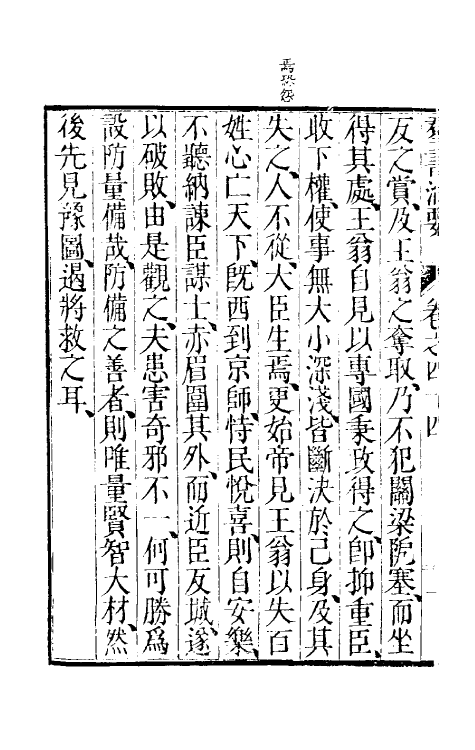 焉恐怨
群書治要 卷之四十四
反之賞、及王翁之奪取、乃不犯關梁阨塞、而坐
得其處、王翁自見以專國秉政得之、即抑重臣、
收下權、使事無大小深淺皆斷決於己身、及其
失之、人不從、大臣生焉、更始帝見王翁以失百
姓心亡天下、既西到京師、恃民悅喜、則自安樂、
不聽納諫臣謀士、赤眉圍其外、而近臣反城、遂
以破敗、由是觀之、夫患害奇邪不一、何可勝爲
設防量備哉、防備之善者、則唯量賢智大材、然
後先見豫圖、遏將救之耳、